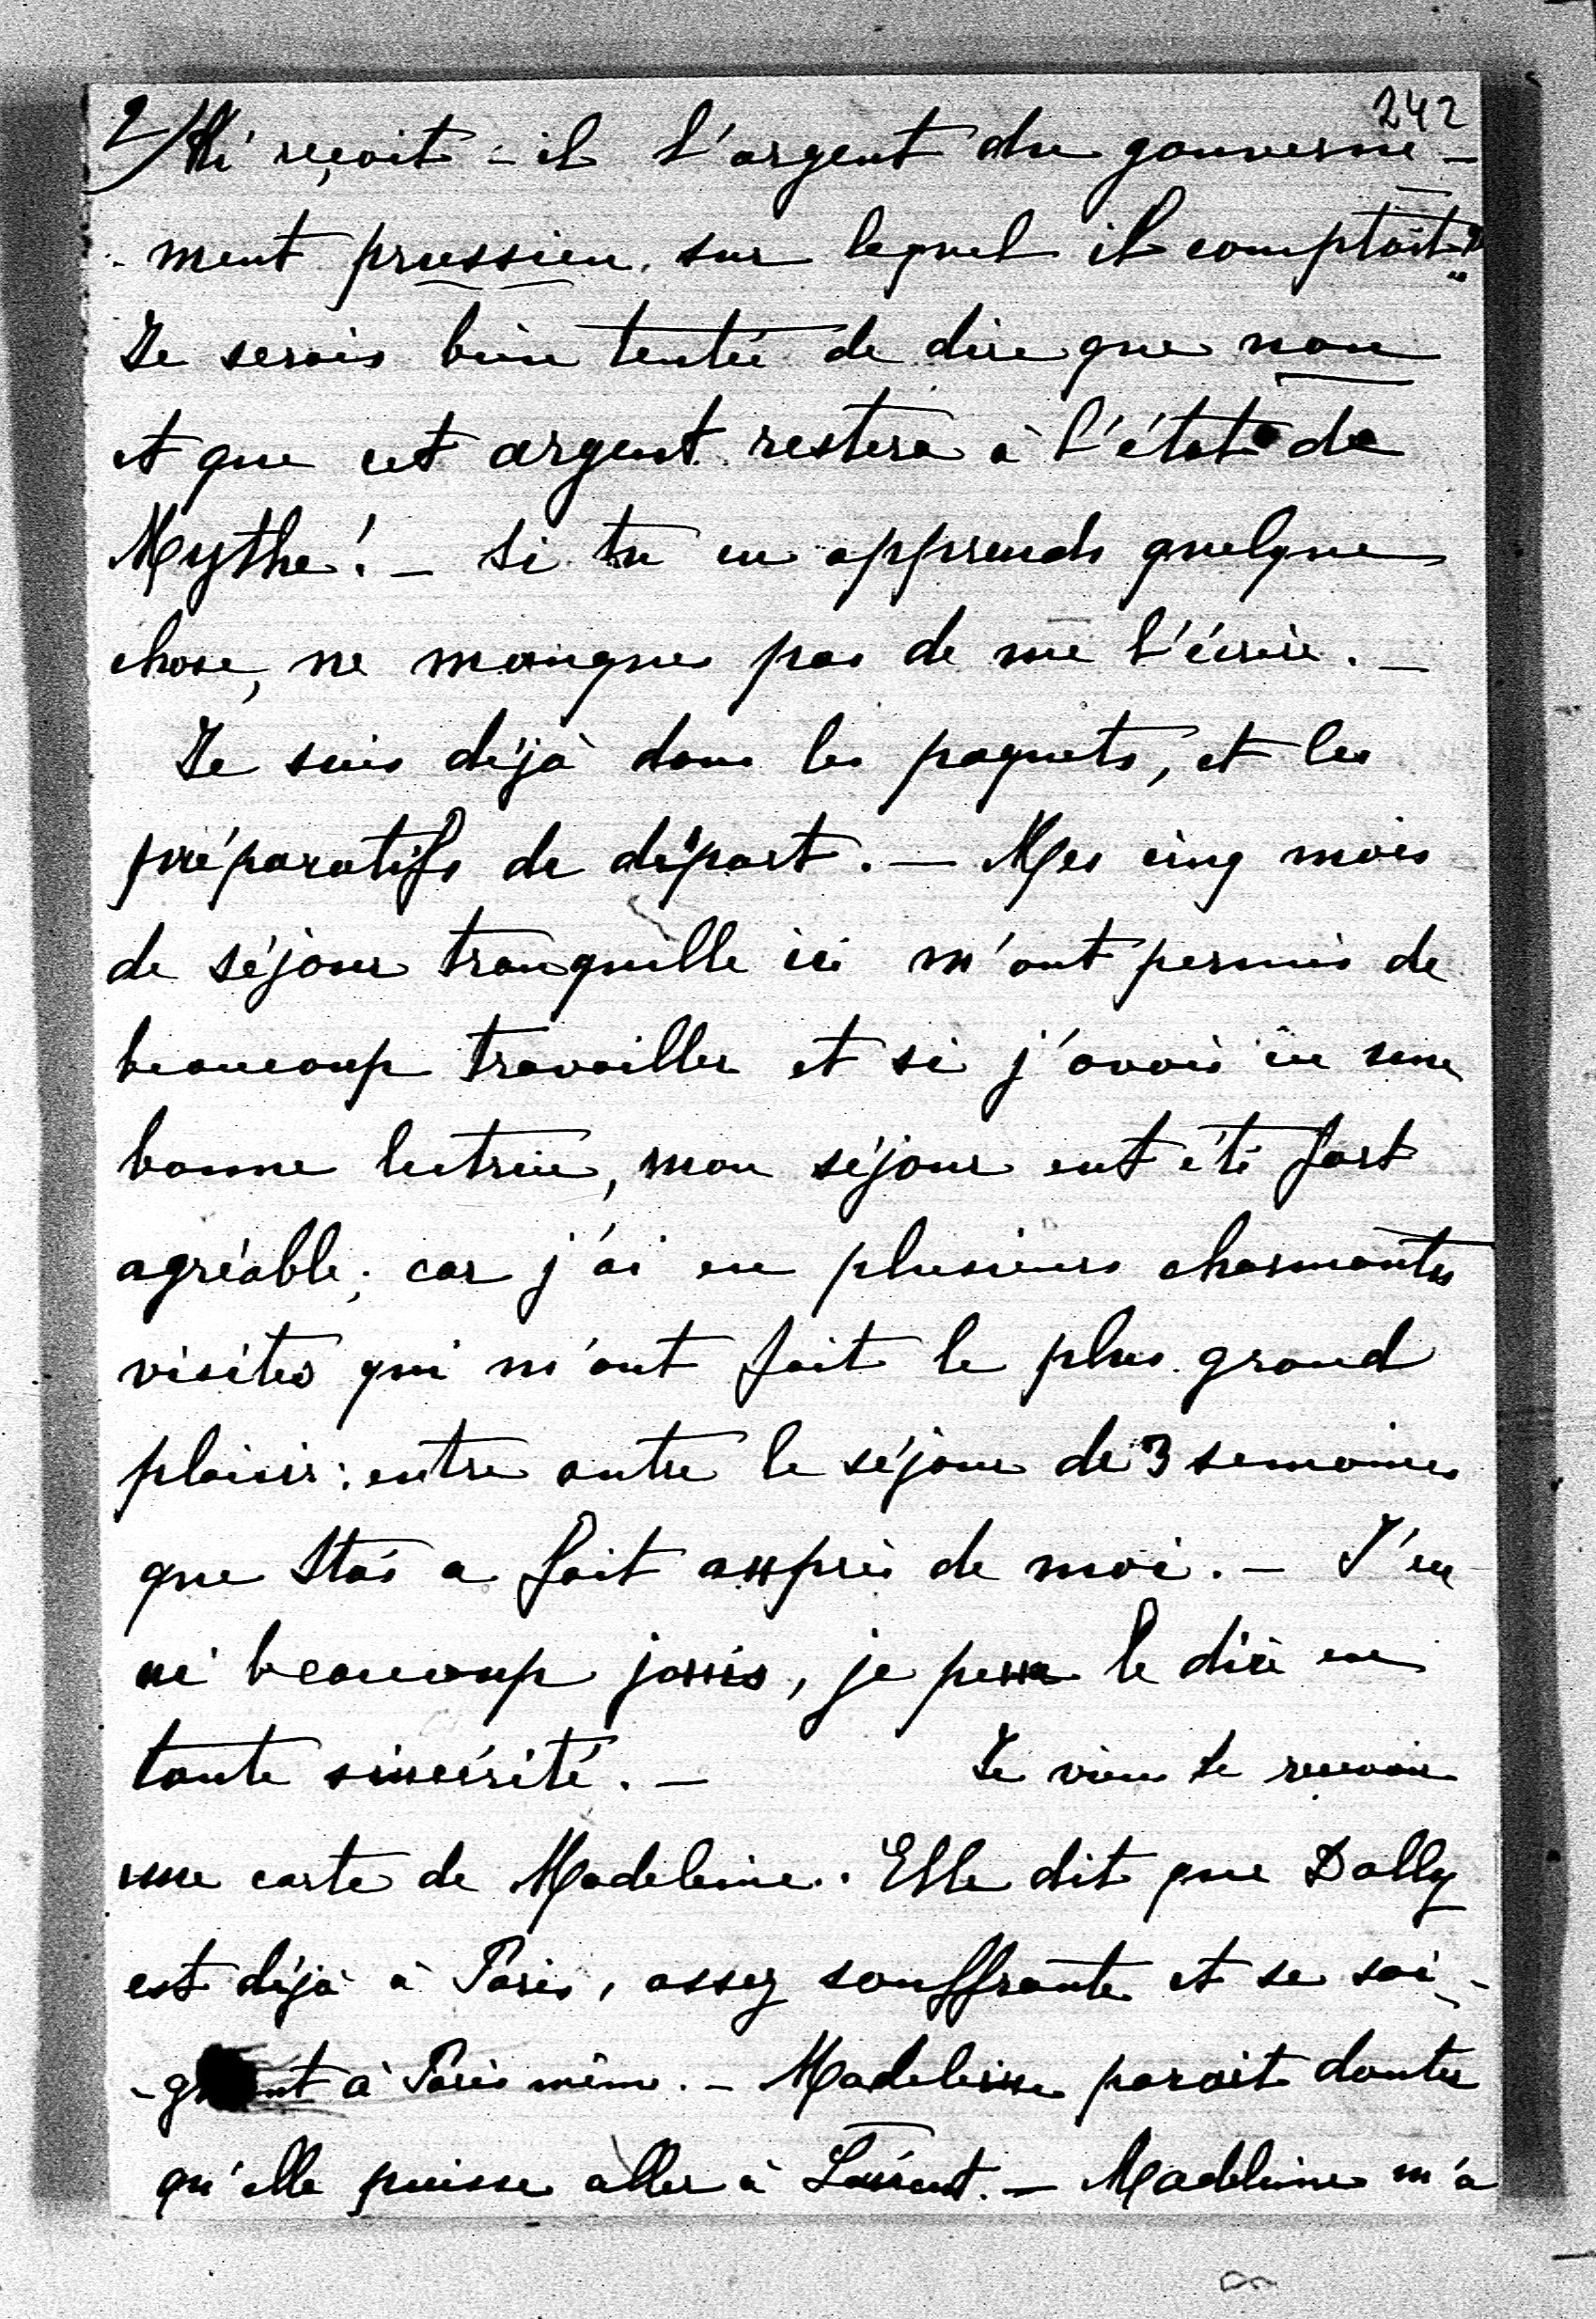 242
2/ Ali reçoit-il l'argent du gouverne-
-ment prussien, sur lequel il comptait?
Je serais bien tentée de dire que non
et que cet argent restera à l'état de
Mythe! – Si tu en apprends quelque
chose, ne manque pas de me l'écrire. –
Je suis déjà dans les paquets, et les
préparatifs de départ. – Mes cinq mois
de séjour tranquille ici m'ont permis de
beaucoup travailler et si j'avais eu une
bonne lectrice, mon séjour eut été fort
agréable; car j'ai eu plusieurs charmantes
visites qui m'ont fait le plus grand
plaisir: entre autre le séjour de 3 semaines
que Staś a fait auprès de moi. – J'en
ai beaucoup joui, je peux le dire en
toute sincérité. – Je viens de recevoir
une carte de Madeleine. Elle dit que Dolly
est déjà à Paris, assez souffrante et se soi-
-gnant à Paris même. – Madeleine parait douter
qu'elle puisse aller à – Madeleine m'a